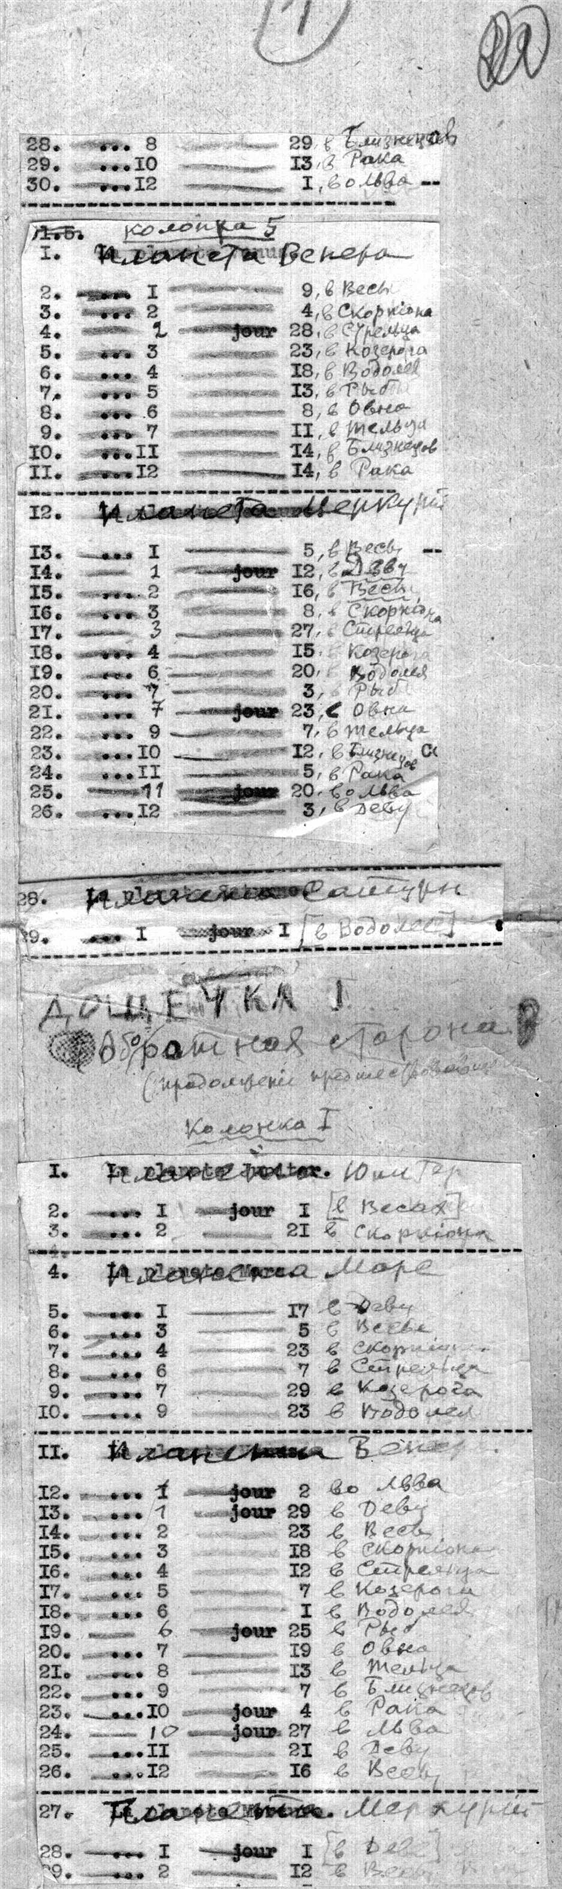 1
28. ... 8 29, в Близнецов
29. ... 10 13, в Рака
30. ... 12 I, во Льва --
Колонка 5
I. Планета Венера
2. ... I 9, в Весы
3. ... 2 4, в Скорпiона
4. 2 jour 28, в Стрельца
5. ... 3 23, в Козерога
6. ... 4 18, в Водолея
7. ... 5 13, в Рыб
8. ... 6 8, в Овна
9. ... 7 II, в Тельца
10. ... II 14, в Близнецов
II. ... 12 14, в Рака
12. Планета Меркурiй
13. ... I 5, в Весы --
14. 1 jour 12, в Деву
15. ... 2 16, в Весы
16. ... 3 8, в Скорпiона
17. 3 27, в Стрельца
18. ... 4 15 в Козерога
19. ... 6 20, в Водолея
20. ... 7 3, в Рыб
21. ... 7 jour 23, в Овна
22. ... 9 7, в Тельца
23. ... 10 12, в Близнецов
24. ... II 5, в Рака
25. 11 jour 20, во Льва
26. ... 12 3, в Деву
28. Планета Сатурн
29. ... I jour I [в Водолее]
ДОЩЕЧКА I
Обратная сторона
(продолженiе
Колонка I
I. Планета Юпитер
2. ... I jour I [в Весах]
3. ... 2 21 в Скорпiона
4. Планета Марс
5. ... I 17 в Деву
6. ... 3 5 в Весы
7. ... 4 23 в Скорпiона
8. ... 6 7 в Стрельца
9. ... 7 29 в Козерога
10. ... 9 23 в Водолея
II. Планета Венера
12. ... I jour 2 во Льва
13. ... 1 jour 29 в Деву
14. ... 2 23 в Весы
15. ... 3 18 в Скорпiона
16. ... 4 12 в Стрельца
17. ... 5 7 в Козерога
18. ... 6 I в Водолея
19. 6 jour 25 в Рыб
20. ... 7 19 в Овна
21. ... 8 13 в Тельца
22. ... 9 7 в Близнецов
23. ... 10 jour 4 в Рака
24. 10 jour 27 в Льва
25. ... II 21 в Деву
26. ... 12 16 в Весы
27. Планета Меркурiй
28. ... I jour I [в Деве]
29. ... 2 12 в Весы